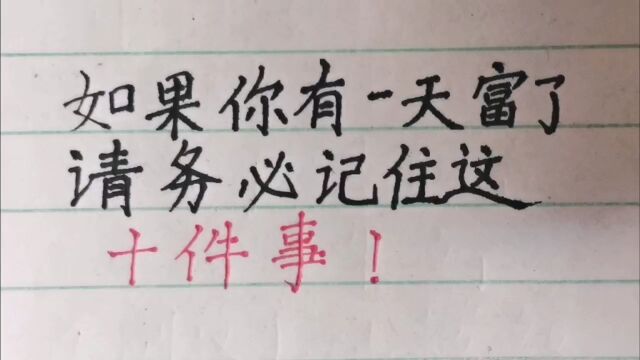 如果你有一天富了
请务必记住这
十件事！